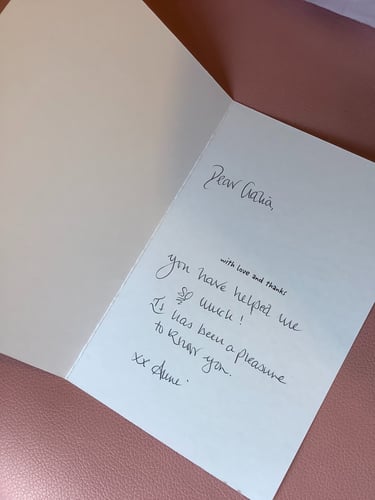 Dear
with love and thanks
you have helped me
so much!
It has been a pleasure
to know you.
xx Anne.